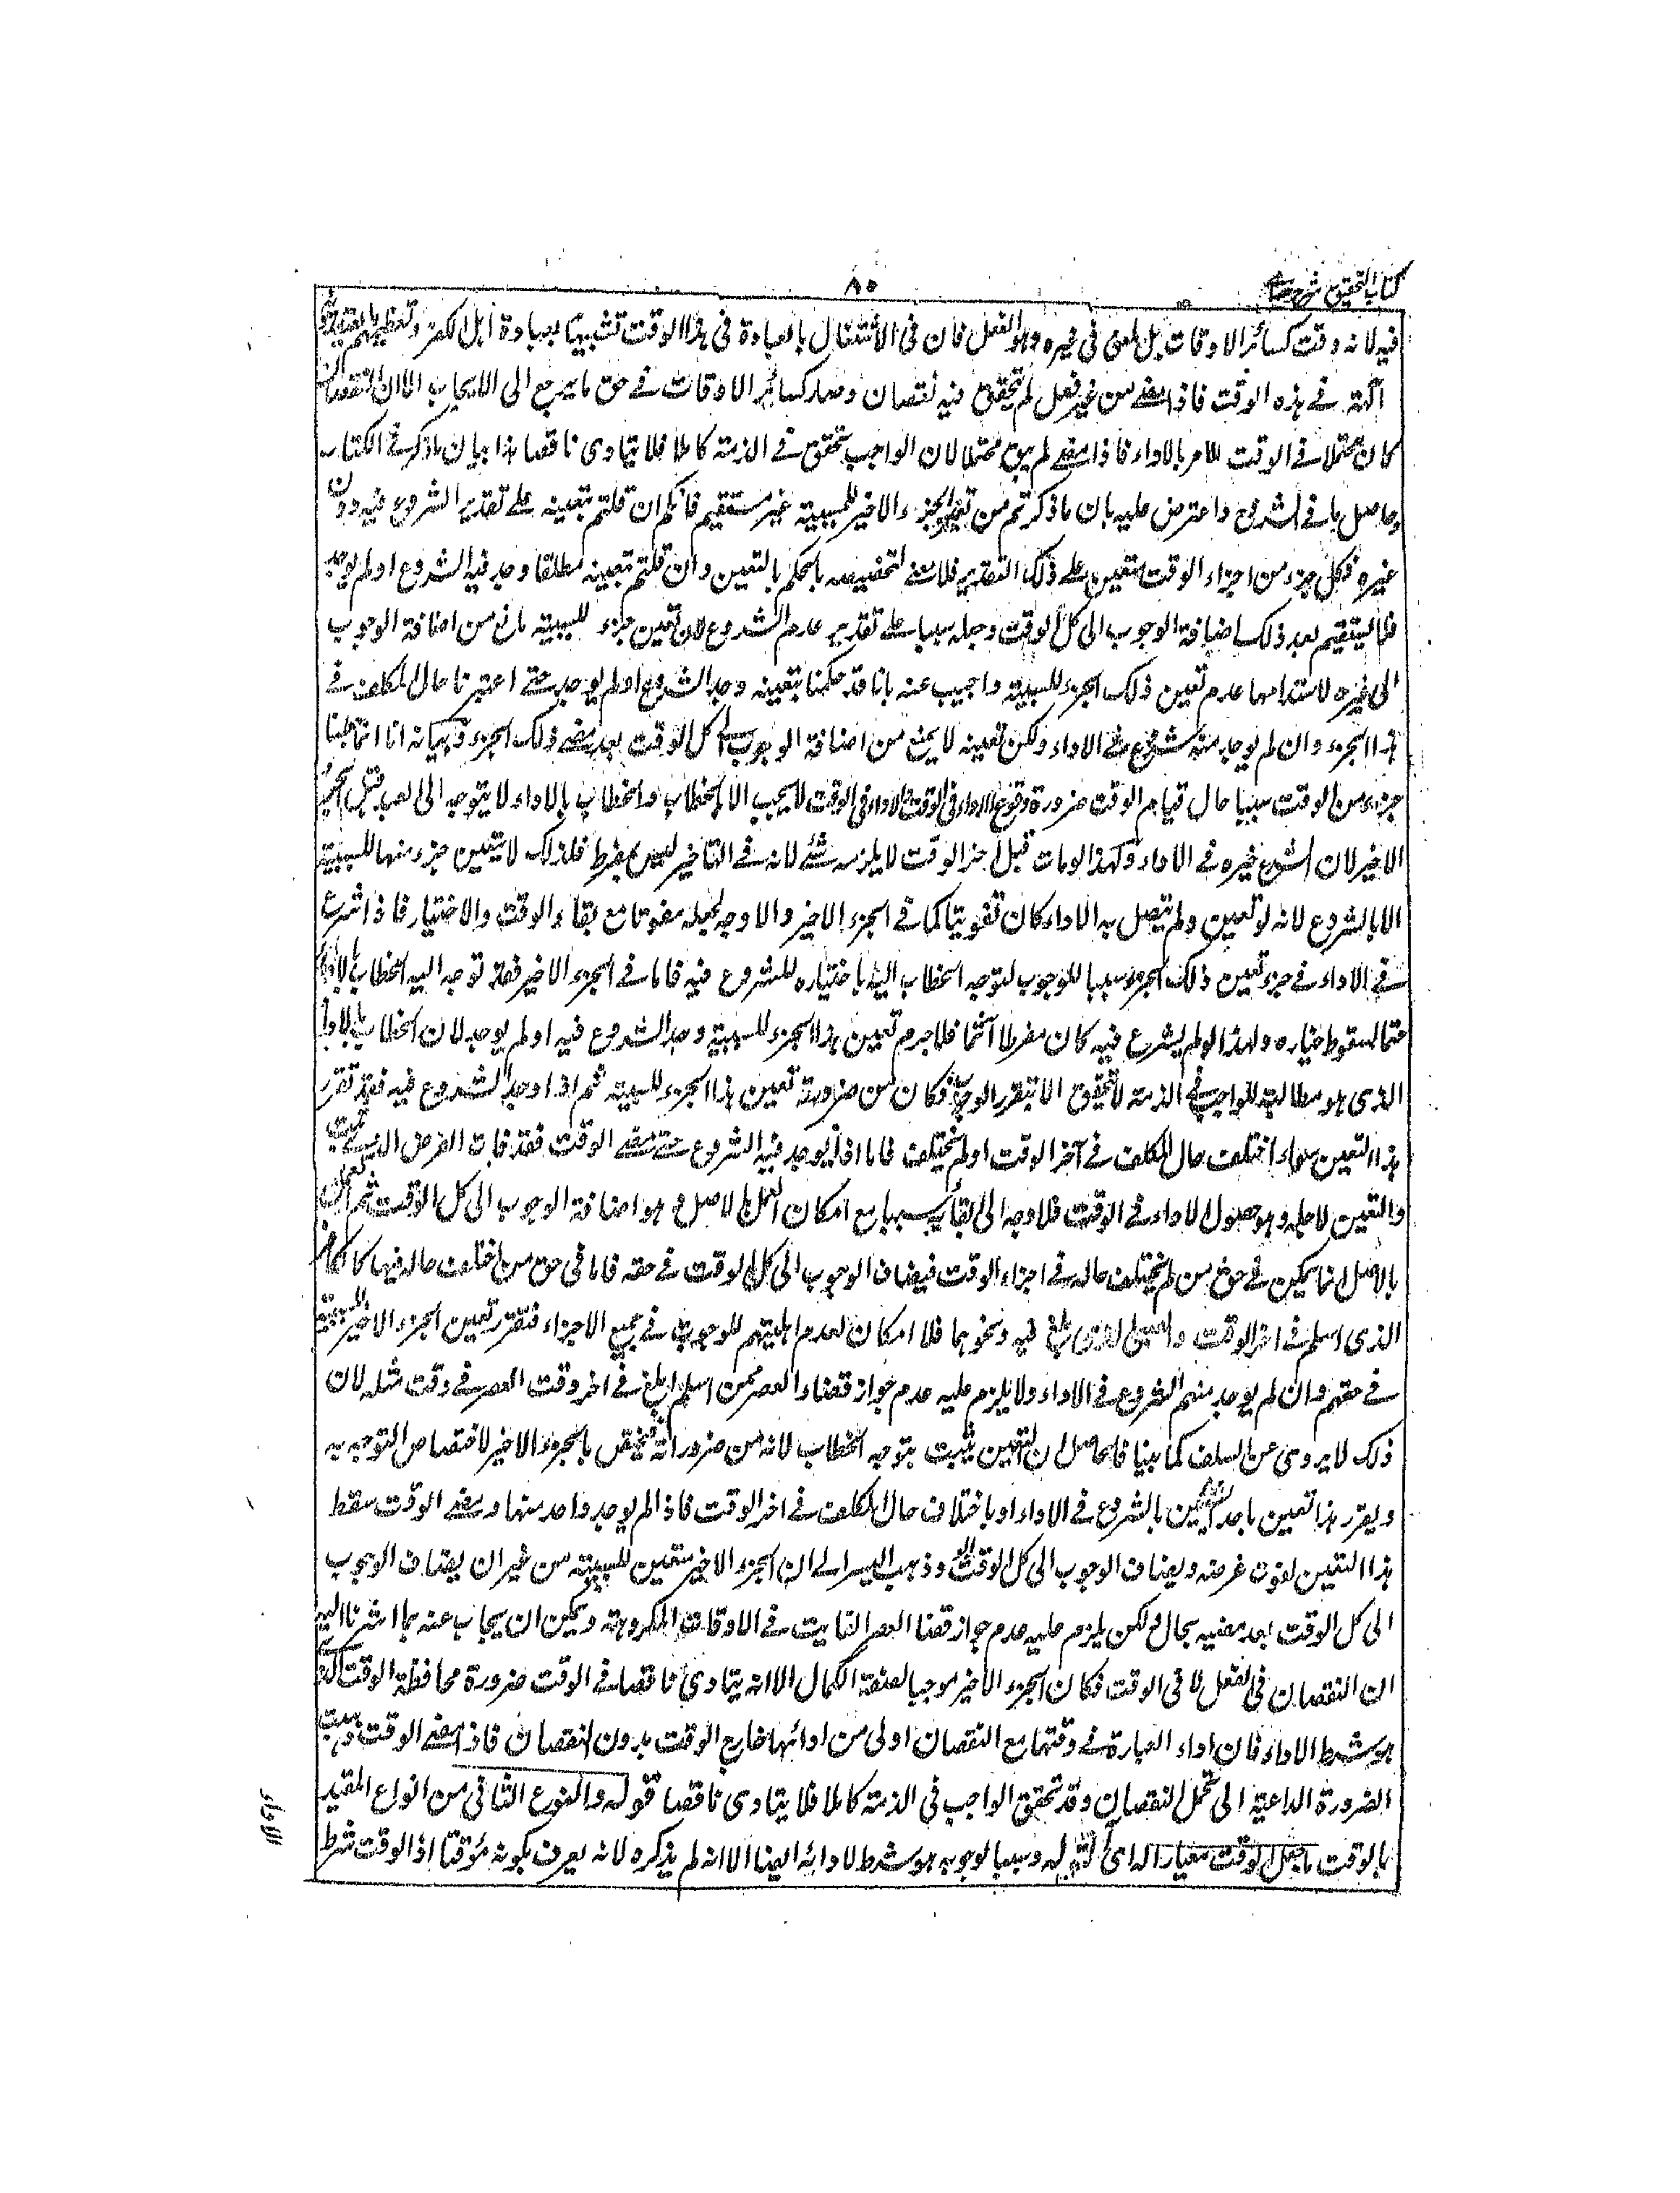 كتاب التحقيق شرح حسامى
٨٥
فيه لانه وقت كسائر الاوقات بل لمعنى فى غيره وهو الفعل فان فى الاشتغال بالعبادة فى هذا الوقت تشبيها بعبادة اهل الكفر وتعظيمهم
آلهته فے هذه الوقت فاذا مضے من غير فعل لم يتحقق فيه نقصان وصار كسائر الاوقات فے حق ما يرجع الى الايجاب الا ان النقصان
كان محتملا فے الوقت للامر بالاداء فاذا مضے لم يبق محتملا لان الواجب تحقق فے الذمة كاملا فلا يتادى ناقصا هذا بيان ما ذكر فے الكتاب
وحاصل ما فے الشروح واعترض عليه بان ما ذكرتم من تعيين الجزء الاخير للسببية غير مستقيم فانكم ان قلتم بتعينه علے تقدير الشروع فيه دون
غيره فكل جزء من اجزاء الوقت متعين علے ذلك التقدير فلا معنے لتخصيصه بالحكم بالتعين وان قلتم بتعينه مطلقا وجد فيه الشروع او لم يوجد
فلا يستقيم بعد ذلك اضافة الوجوب الى كل الوقت وجعله سببا علے تقدير عدم الشروع لان تعين جزء للسببية مانع من اضافة الوجوب
الى غيره لاستدامها عدم تعين ذلك الجزء للسببية واجيب عنه بانا قد حكمنا بتعينه وجد الشروع او لم يوجد حتے اعتبرنا حال المكلف فے
هذا الجزء وان لم يوجد منه شروع فے الاداء ولكن تعينه لا يمنع من اضافة الوجوب الى كل الوقت بعد مضے ذلك الجزء وبيانه انا انما جعلنا
جزء من الوقت سببا حال قيام الوقت ضرورة وقوع الاداء فى الوقت والاداء فى الوقت لا يجب الا بالخطاب والخطاب بالاداء لا يتوجه الى العبد قبل الجزء
الاخير لان الشرع خيره فے الاداء ولهذا لو مات قبل آخر الوقت لا يلزمه شئے لانه فے التاخير ليس بمفرط فلذلك لا يتعين جزء منها للسببية
الا بالشروع لانه لو تعين ولم يتصل به الاداء كان تفويتا كما فے الجزء الاخير والا وجه لجعله مفوتا مع بقاء الوقت والاختيار فاذا شرع
فے الاداء فے جزء تعين ذلك الجزء سببا للوجوب لتوجه الخطاب اليه باختياره للشروع فيه فاما فے الجزء الاخير فقد توجه اليه الخطاب بالاداء
حتما لسقوط خياره ولهذا لو لم يشرع فيه كان مفرطا آثما فلا جرم تعين هذا الجزء للسببية وجد الشروع فيه او لم يوجد لان الخطاب بالاداء
الذى هو مطالبة للواجب فے الذمة لا يتحقق الا بتقرر الوجوب فكان من ضرورته تعين هذا الجزء للسببية ثم اذا وجد الشروع فيه فقد تقرر
هذا التعين سواء اختلف حال المكلف فے آخر الوقت او لم يختلف فاما اذا لم يوجد فيه الشروع حتے مضے الوقت فقد فات الغرض الذى
والتعين لاجله وهو حصول الاداء فے الوقت فلا وجه الى ابقائه سببا مع امكان العمل بالاصل وهو اضافة الوجوب الى كل الوقت ثم العمل
بالاصل انما يمكن فے حق من لم يختلف حاله فے اجزاء الوقت فيضاف الوجوب الى كل الوقت فے حقه فاما فى حق من اختلف حاله فيها كالكافر
الذى اسلم فے اخر الوقت والصبى الذى بلغ فيه ونحوهما فلا امكان لعدم اهليتهم للوجوب فے جميع الاجزاء فتقرر تعين الجزء الاخير للسببية
فے حقهم وان لم يوجد منهم الشروع فے الاداء ولا يلزم عليه عدم جواز قضاء العصر ممن اسلم او بلغ فے اخر وقت العصر فے وقت مثله لان
ذلك لا يروى عن السلف كما بينا فالحاصل ان التعين يثبت بتوجه الخطاب لانه من ضروراته فيختص بالجزء الاخير لاختصاص التوجه به
ويقرر هذا تعين باحد الشيئين بالشروع فے الاداء او باختلاف حال المكلف فے اخر الوقت فاذا لم يوجد واحد منهما ومضے الوقت سقط
هذا التعين لفوت غرضه ويضاف الوجوب الى كل الوقت وذهب اليسر الے ان الجزء الاخير متعين للسببية من غير ان يضاف الوجوب
الى كل الوقت بعد مضيه بحال ولكن يلزم عليه عدم جواز قضا العصر الفايت فے الاوقات المكروهة ويمكن ان يجاب عنه بما اشرنا اليه
ان النقصان فى الفعل لا فى الوقت فكان الجزء الاخير موجبا لصفة الكمال الا انه يتادى ناقصا فے الوقت ضرورة محافظة الوقت الذى
هو شرط الاداء فان اداء العبادة فے وقتها مع النقصان اولى من ادائها خارج الوقت بدون النقصان فاذا مضے الوقت ذهبت
الضرورة الداعية الى تحمل النقصان وقد تحقق الواجب فى الذمة كاملا فلا يتادى ناقصا قوله والنوع الثانى من انواع المقيد
بالوقت ما جعل الوقت معيارا له اى لله وسببا لوجوبه هو شرط لادائه ايضا الا انه لم يذكره لانه يعرف بكونه مؤقتا اذ الوقت شرط
الاداء